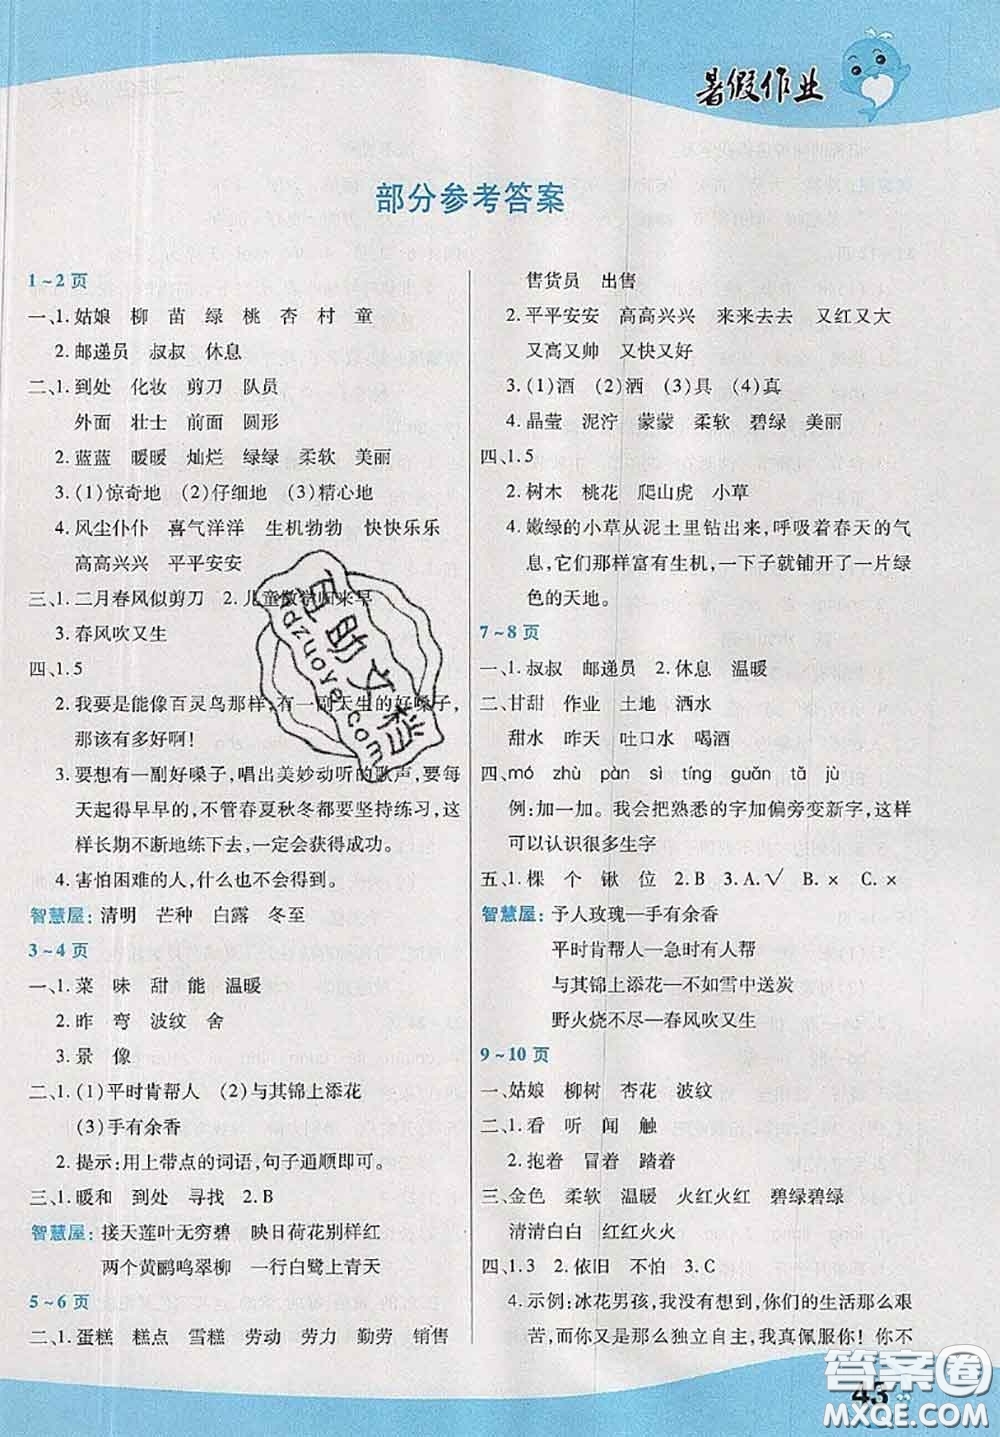 暑假作业
部分参考答案
1~2页
一、1.姑娘 柳 苗 绿 桃 杏 村 童
2.邮递员 叔叔 休息
二、1.到处 化妆 剪刀 队员
外面 壮士 前面 圆形
2.蓝蓝 暖暖 灿烂 绿绿 柔软 美丽
3.(1)惊奇地 (2)仔细地 (3)精心地
4.风尘仆仆 喜气洋洋 生机勃勃 快快乐乐
高高兴兴 平平安安
三、1.二月春风似剪刀 2.儿童散学归来早
3.春风吹又生
四、1.5
2.我要是能像百灵鸟那样,有一副天生的好嗓子,
那该有多好啊!
3.要想有一副好嗓子,唱出美妙动听的歌声,要每
天起得早早的,不管春夏秋冬都要坚持练习,这
样长期不断地练下去,一定会获得成功。
4.害怕困难的人,什么也不会得到。
智慧屋:清明 芒种 白露 冬至
3~4页
一、1.菜 味 甜 能 温暖
2.昨 弯 波纹 舍
3.景 像
二、1.(1)平时肯帮人 (2)与其锦上添花
(3)手有余香
2.提示:用上带点的词语,句子通顺即可。
三、1.暖和 到处 寻找 2.B
智慧屋:接天莲叶无穷碧 映日荷花别样红
两个黄鹂鸣翠柳 一行白鹭上青天
5~6页
二、1.蛋糕 糕点 雪糕 劳动 劳力 勤劳 销售
售货员 出售
2.平平安安 高高兴兴 来来去去 又红又大
又高又帅 又快又好
3.(1)洒 (2)酒 (3)具 (4)真
4.晶莹 泥泞 蒙蒙 柔软 碧绿 美丽
四、1.5
2.树木 桃花 爬山虎 小草
4.嫩绿的小草从泥土里钻出来,呼吸着春天的气
息,它们那样富有生机,一下子就铺开了一片绿
色的天地。
7~8页
一、1.叔叔 邮递员 2.休息 温暖
二、甘甜 作业 土地 洒水
甜水 昨天 吐口水 喝酒
四、mó zhù pàn sì tíng guǎn tǎ jù
例:加一加。我会把熟悉的字加偏旁变新字,这样
可以认识很多生字
五、1.棵 个 锹 位 2.B 3.A.√ B.× C.×
智慧屋:予人玫瑰—手有余香
平时肯帮人—急时有人帮
与其锦上添花—不如雪中送炭
野火烧不尽—春风吹又生
9~10页
一、姑娘 柳树 杏花 波纹
二、1.看 听 闻 触
2.抱着 冒着 踏着
三、金色 柔软 温暖 火红火红 碧绿碧绿
清清白白 红红火火
四、1.3 2.依旧 不怕 3.C
4.示例:冰花男孩,我没有想到,你们的生活那么艰
苦,而你又是那么独立自主,我真佩服你!你不
43
答案圈
MXQE.COM